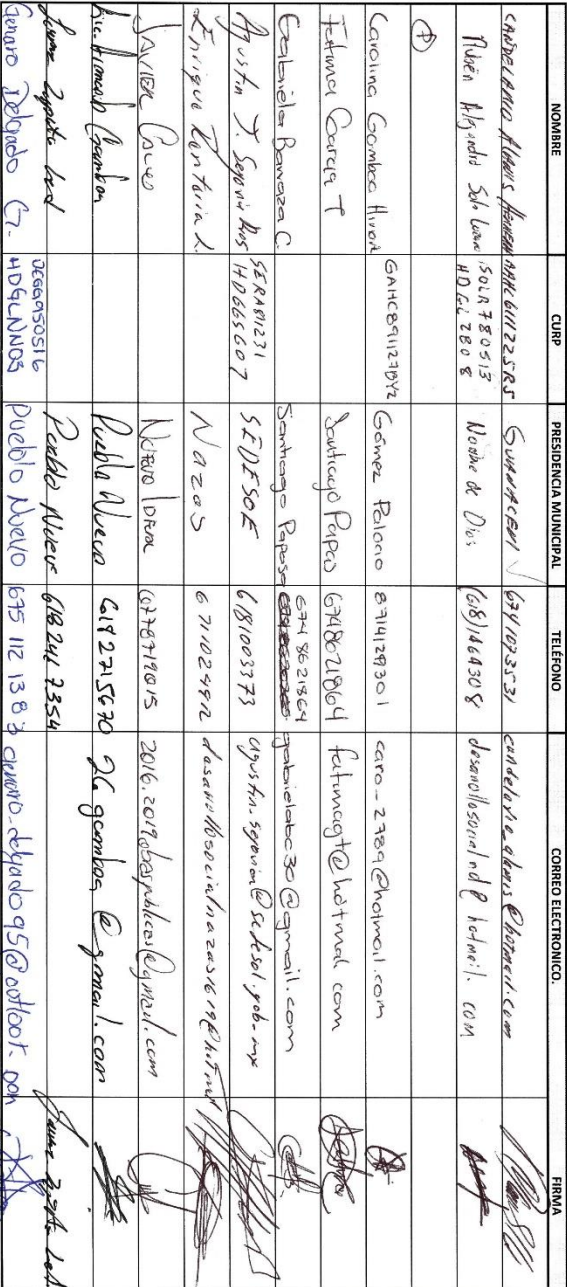 NOMBRE CURP PRESIDENCIA MUNICIPAL TELÉFONO CORREO ELECTRONICO. FIRMA
CANDELARIO AAHC611225RS GUANACEVI 6741073531
Rubén Alejandro Soto SOLR780513 HDGL2808 Nombre de Dios (618)1464308 desarrollosocialnd@hotmail.com
P
Carolina Gamboa GAHC891127BY2 Gómez Palacio 8714129301 caro_2789@hotmail.com
Fatima Garcia T Santiago Papas 6748621864 fatimagt@hotmail.com
Gabriela Barraza C. Santiago Papasq 674 8621864 gabrielabc30@gmail.com
Agustin J. Segovia Rios HD665607 SEDESOE 6181003373 agustin.segovia@sedesol.gob.mx
Enrique Renteria L. Nazas 6711024912 desarrollosocialnazas1619@hotmail
JAVIER NUEVO IDEAL 6778719015 2016.2019obraspublicas@gmail.com
Lic. Armando Gamboa Pueblo Nuevo 6192715670 26gamboa@gmail.com
Pueblo Nuevo 618 241 2354
Genaro Delgado G. DEGG950516 HDGLNN03 Pueblo Nuevo 675 112 1383 genaro_delgado95@outloot.com